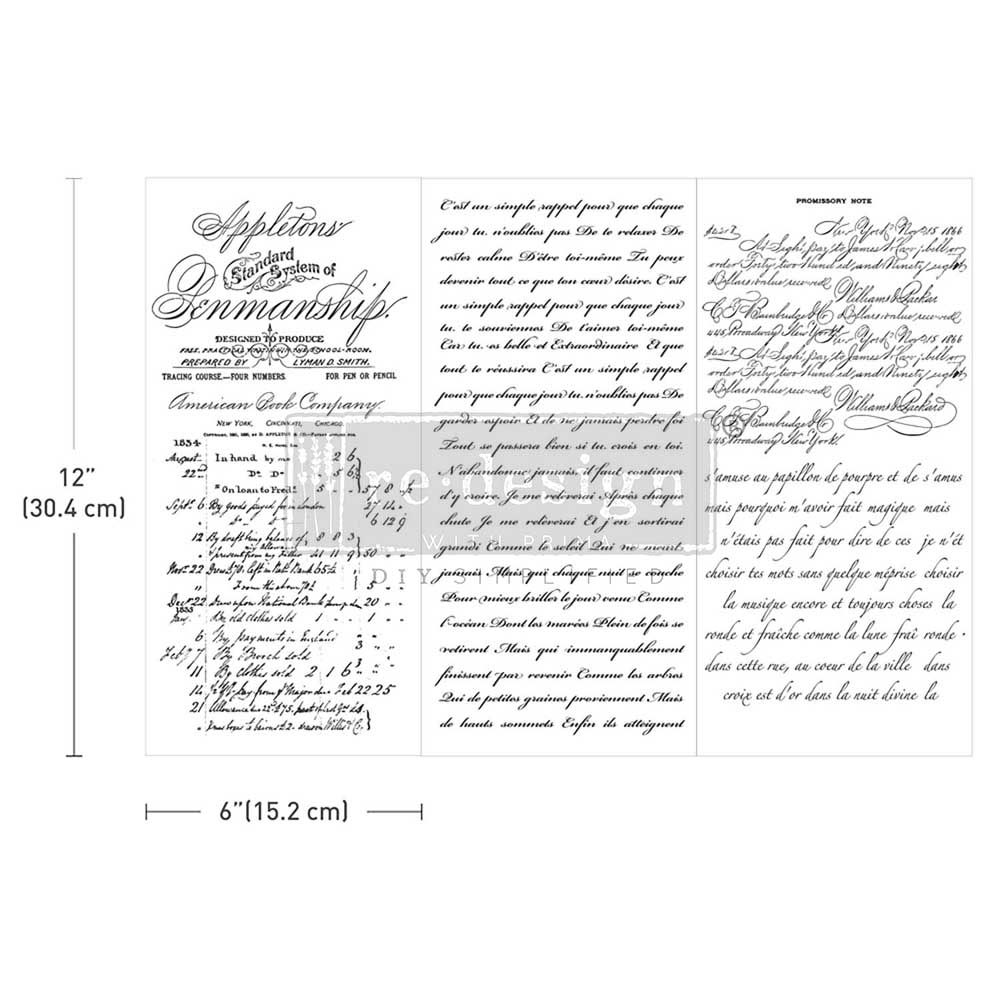 12"
(30.4 cm)
6"(15.2 cm)
Appletons'
Standard
System of
Penmanship.
DESIGNED TO PRODUCE
FREE, PRACTICAL
SCHOOL-ROOM.
PREPARED BY LYMAN D. SMITH.
TRACING COURSE—FOUR NUMBERS. FOR PEN OR PENCIL
American Book Company.
NEW YORK, CINCINNATI, CHICAGO.
1834
August In hand by me 2 6
22 Do Do 5 6
"On loan to Fred 5
Sept. 6 By goods payed for in London
6 12 9
12 By draft being balance of 8 8 3
present from my Father 41 11 9 50
Nov. 22
5
Decr 22 Drawn upon National Bank 20
1835
Jany. Do. old clothes sold 1 - 1
6 By payments in England
Feb 7 By Brooch sold
11 By clothes sold 2 1 6
14 pay from Major due Feb 22 25
21 Allowance
C'est un simple rappel pour que chaque
jour tu n'oublies pas De te relaxer De
rester calme D'être toi-même Tu peux
devenir tout ce que ton cœur désire. C'est
un simple rappel pour que chaque jour
tu te souviennes De t'aimer toi-même
Car tu es belle et Extraordinaire Et que
tout te réussira C'est un simple rappel
pour que chaque jour tu n'oublies pas De
garder espoir Et de ne jamais perdre foi
Tout se passera bien si tu crois en toi.
N'abandonne jamais, il faut continuer
d'y croire. Je me relèverai Après chaque
chute Je me relèverai Et j'en sortirai
grandi Comme le soleil Qui ne meurt
jamais Mais qui chaque nuit se couche
Pour mieux briller le jour venu Comme
l'océan Dont les marées Plein de fois se
retirent Mais qui immanquablement
finissent par revenir Comme les arbres
Qui de petites graines proviennent Mais
de hauts sommets Enfin ils atteignent
PROMISSORY NOTE
New York Nov 15 1866
At Sight, pay to James W. Carr, bill or
order Forty two Hundred, and Ninety eight
Dollars value received
Williams & Packar
C. F. Bainbridge & Co Dollars value received
445, Broadway New York New York Nov 15 1866
At Sight, pay to James W. Carr, bill or
order Forty two Hundred, and Ninety eight
Dollars value received
Williams & Packard
C. F. Bainbridge & Co
445, Broadway New York
s'amuse au papillon de pourpre et de s'amus
mais pourquoi m'avoir fait magique mais
n'étais pas fait pour dire de ces je n'ét
choisir tes mots sans quelque méprise choisir
la musique encore et toujours choses la
ronde et fraîche comme la lune fraî ronde ·
dans cette rue, au coeur de la ville dans
croix est d'or dans la nuit divine la
re·design
WITH PRIMA
DIY SIMPLIFIED